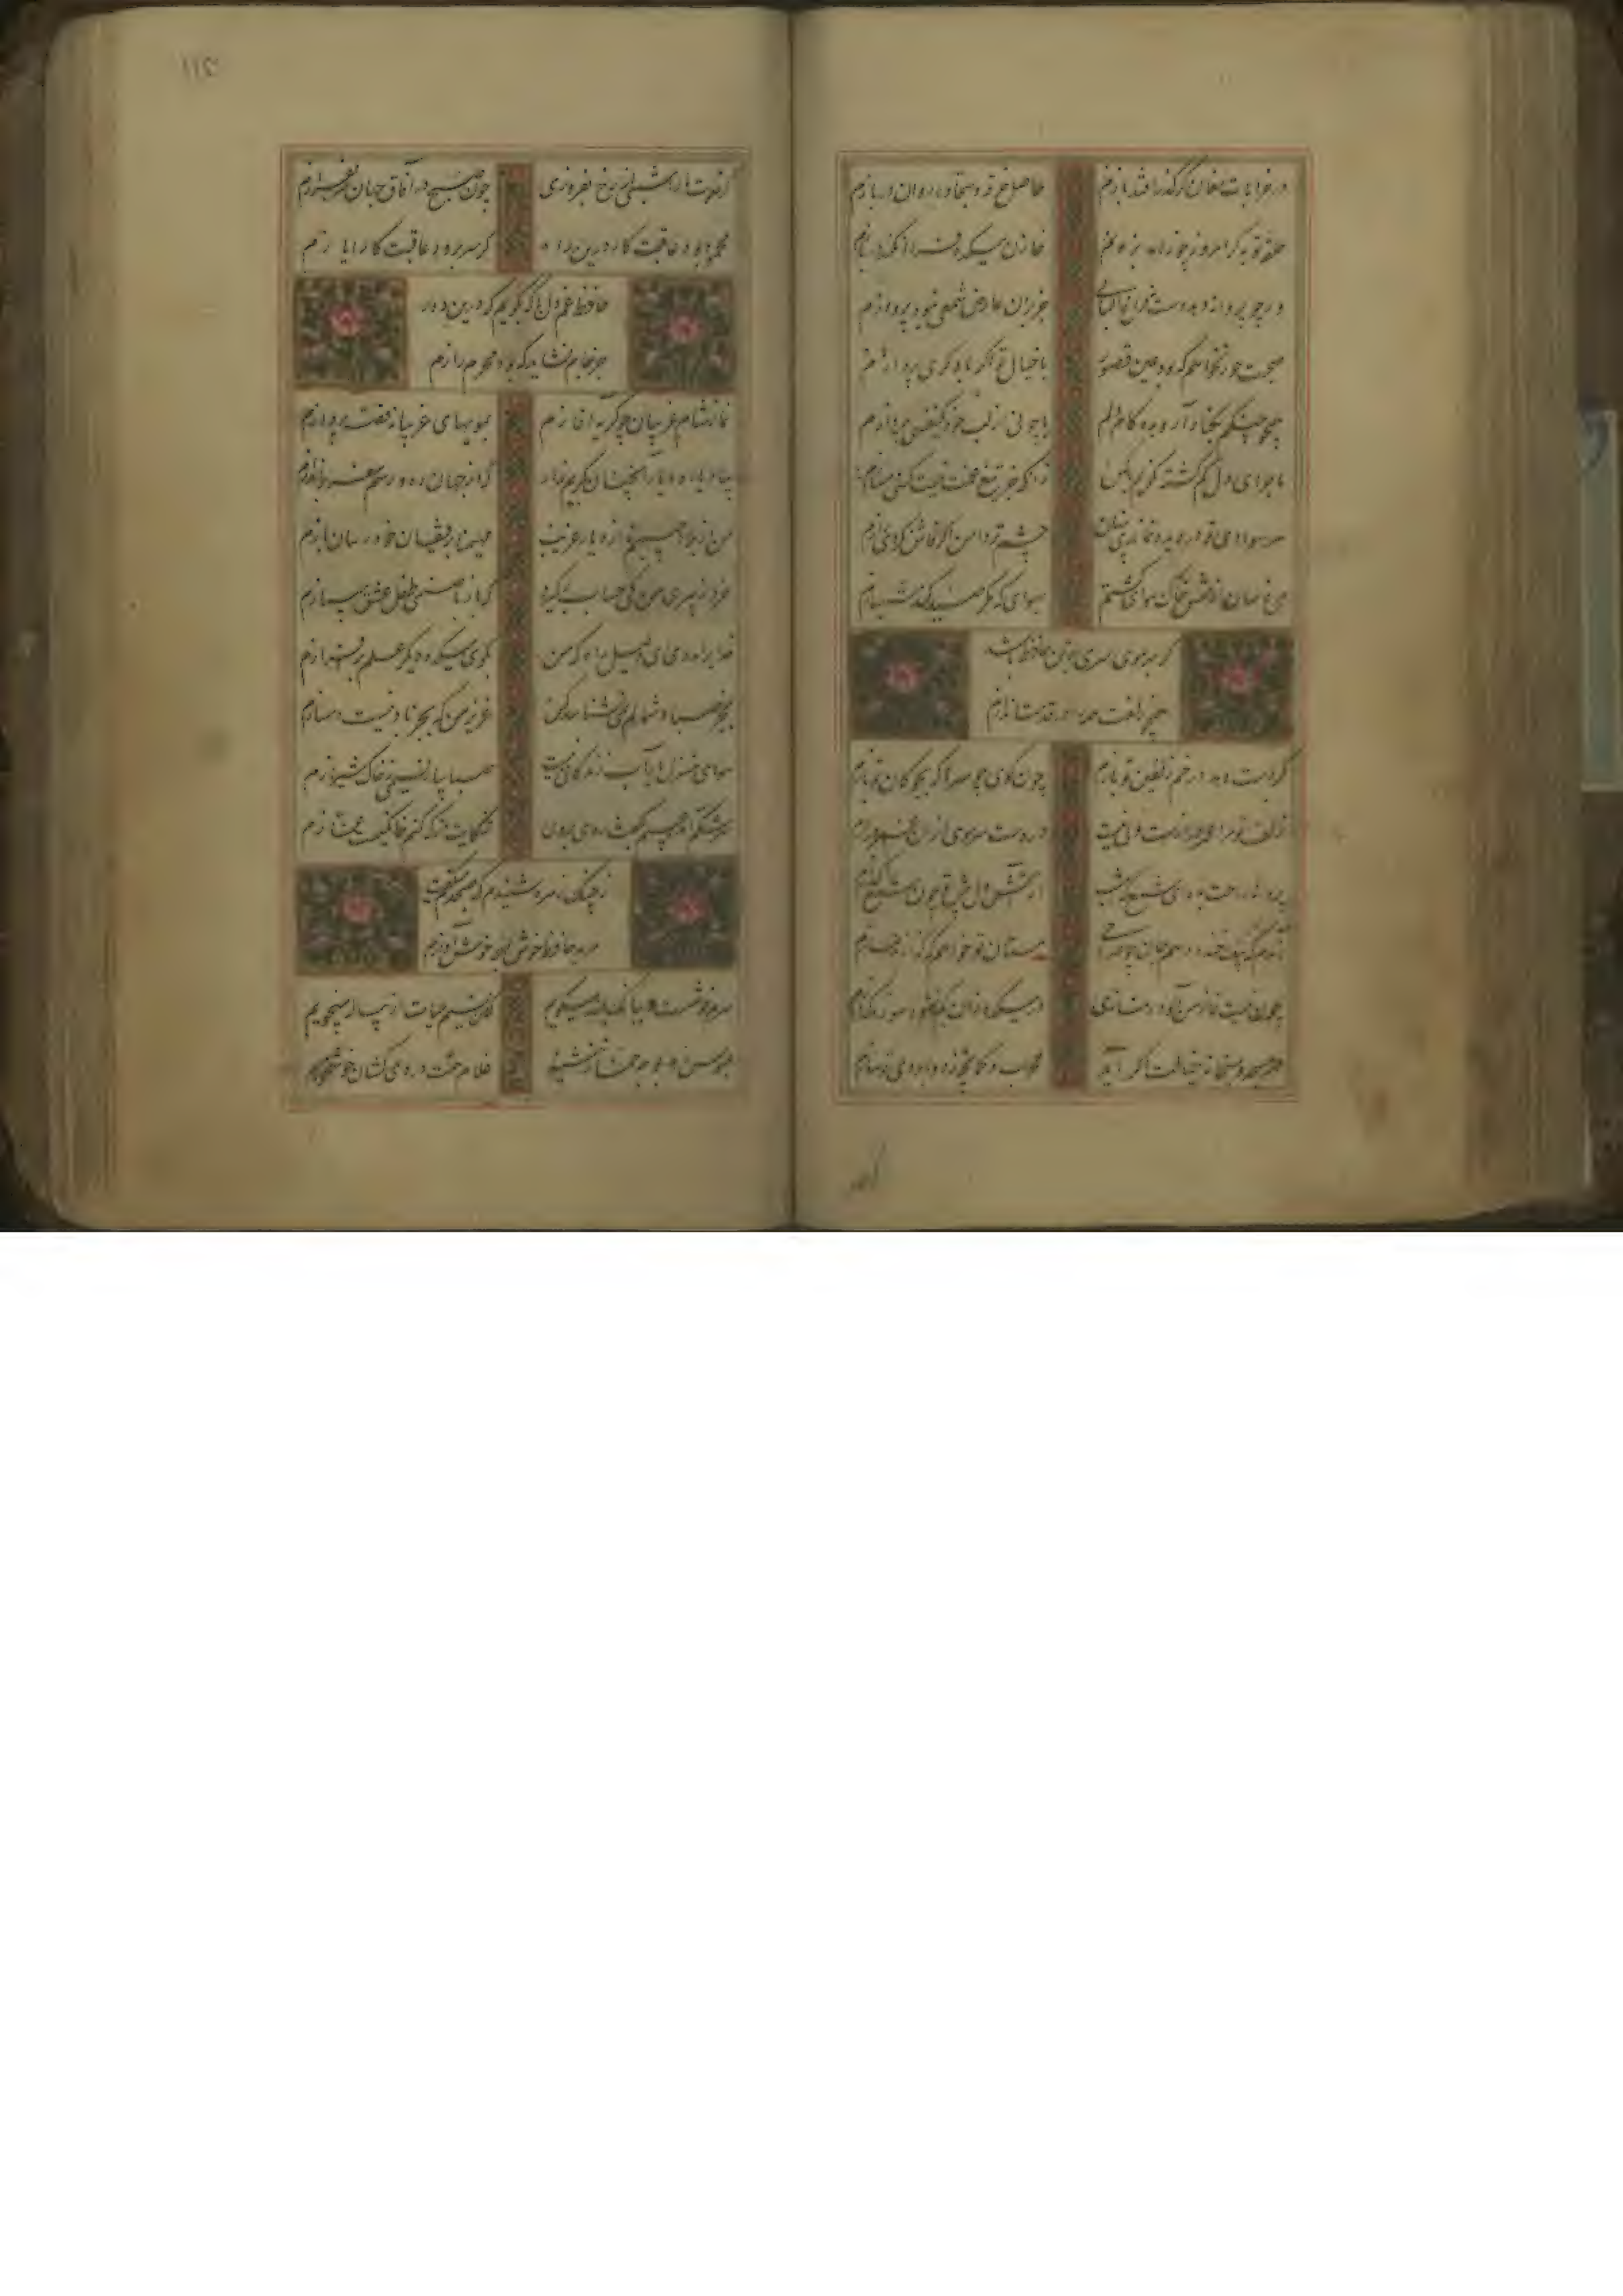 در خرابات مغان گر گذر افتد بازم
حاصل خرقه و سجاده روان دربازم
حلقه توبه گر امروز چو زهاد زنم
خازن میکده فردا نکند در بازم
ور چو پروانه دهد دست فراغ البالی
جز بدان عارض شمعی نبود پروازم
صحبت حور نخواهم که بود عین قصور
با خیال تو اگر با دگری پردازم
همچو چنگم بکنار آر و بده کام دلم
یا چو نی از لب خود یکنفسی بنوازم
ماجرای دل گم گشته نگویم با کس
زانکه جز تیغ غمت نیست کسی دمسازم
سر سودای تو در دیده بماندی پنهان
چشم تر دامن اگر فاش نکردی رازم
مرغ سان از قفس خاک هوایی گشتم
بهوای که مگر صید کند شهبازم
گر بهر موی سری بر تن حافظ باشد
همچو زلفت همه را در قدمت اندازم
گر دست دهد در خم زلفین تو بازم
چون گوی چه سرها که بچوگان تو بازم
زلف تو مرا عمر درازست ولی نیست
در دست سر مویی از آن عمر درازم
پروانه راحت بده ای شمع که امشب
از آتش دل پیش تو چون شمع گدازم
آندم که بیک خنده دهم جان چو صراحی
مستان تو خواهم که گزارند نمازم
چون نیست نماز من آلوده نمازی
در میکده زان کم نشود سوز و گدازم
در مسجد و میخانه خیالت اگر آید
محراب و کمانچه ز دو ابروی تو سازم
گر خلوت ما را شبی از رخ بفروزی
چون صبح در آفاق جهان سر بفرازم
محمود بود عاقبت کار درین راه
گر سر برود عاقبت کار ایازم
حافظ غم دل با که بگویم که درین دور
جز جام نشاید که بود محرم رازم
نماز شام غریبان چو گریه آغازم
بمویهای غریبانه قصه پردازم
بیاد یار و دیار آنچنان بگریم زار
که از جهان ره و رسم سفر براندازم
من از بلاد حبیبم نه از دیار غریب
مهیمنا برفیقان خود رسان بازم
خرد ز پیری من کی حساب برگیرد
که باز با صنمی طفل عشق میبازم
خدایرا مددی ای دلیل راه که من
بکوی میکده دیگر علم برافرازم
بجز صبا و شمالم نمی شناسد کس
عزیز من که بجز باد نیست دمسازم
هوای منزل یار آب زندگانی ماست
صبا بیار نسیمی ز خاک شیرازم
سرشکم آمد و عیبم بگفت روی بروی
شکایت از که کنم خانگیست غمازم
ز چنگ زهره شنیدم که صبحدم میگفت
مرید حافظ خوش لهجه خوش آوازم